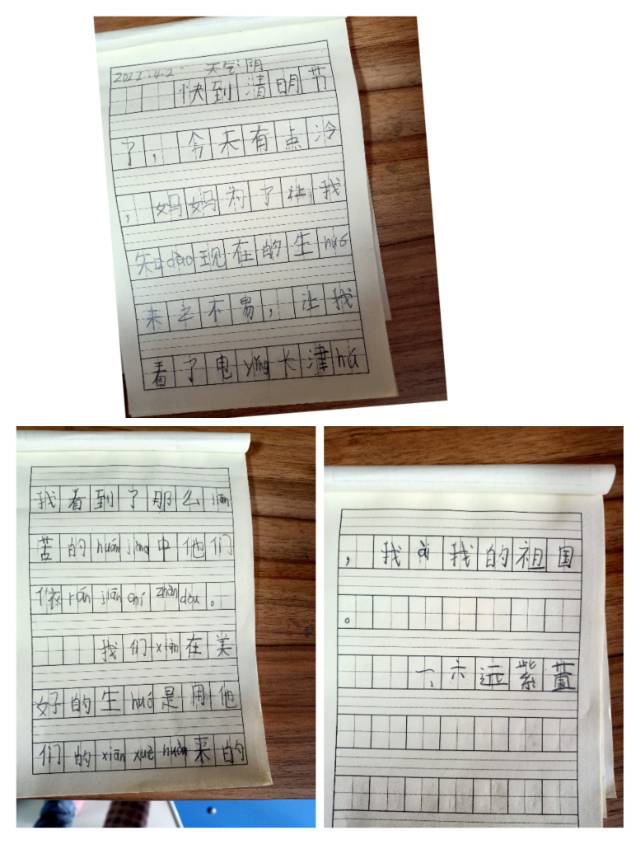 2022.4.2. 天气:阴
快到清明节
了，今天有点冷
，妈妈为了让我
知dào现在的生huó
来之不易，让我
看了电yǐng长津hú
我看到了那么jiān
苦的huán jìng中他们
依rán jiān chí zhàn dòu。
我们xiàn在美
好的生huó是用他
们的xiān xuè huàn来的
，我ài我的祖国
。
远紫萱